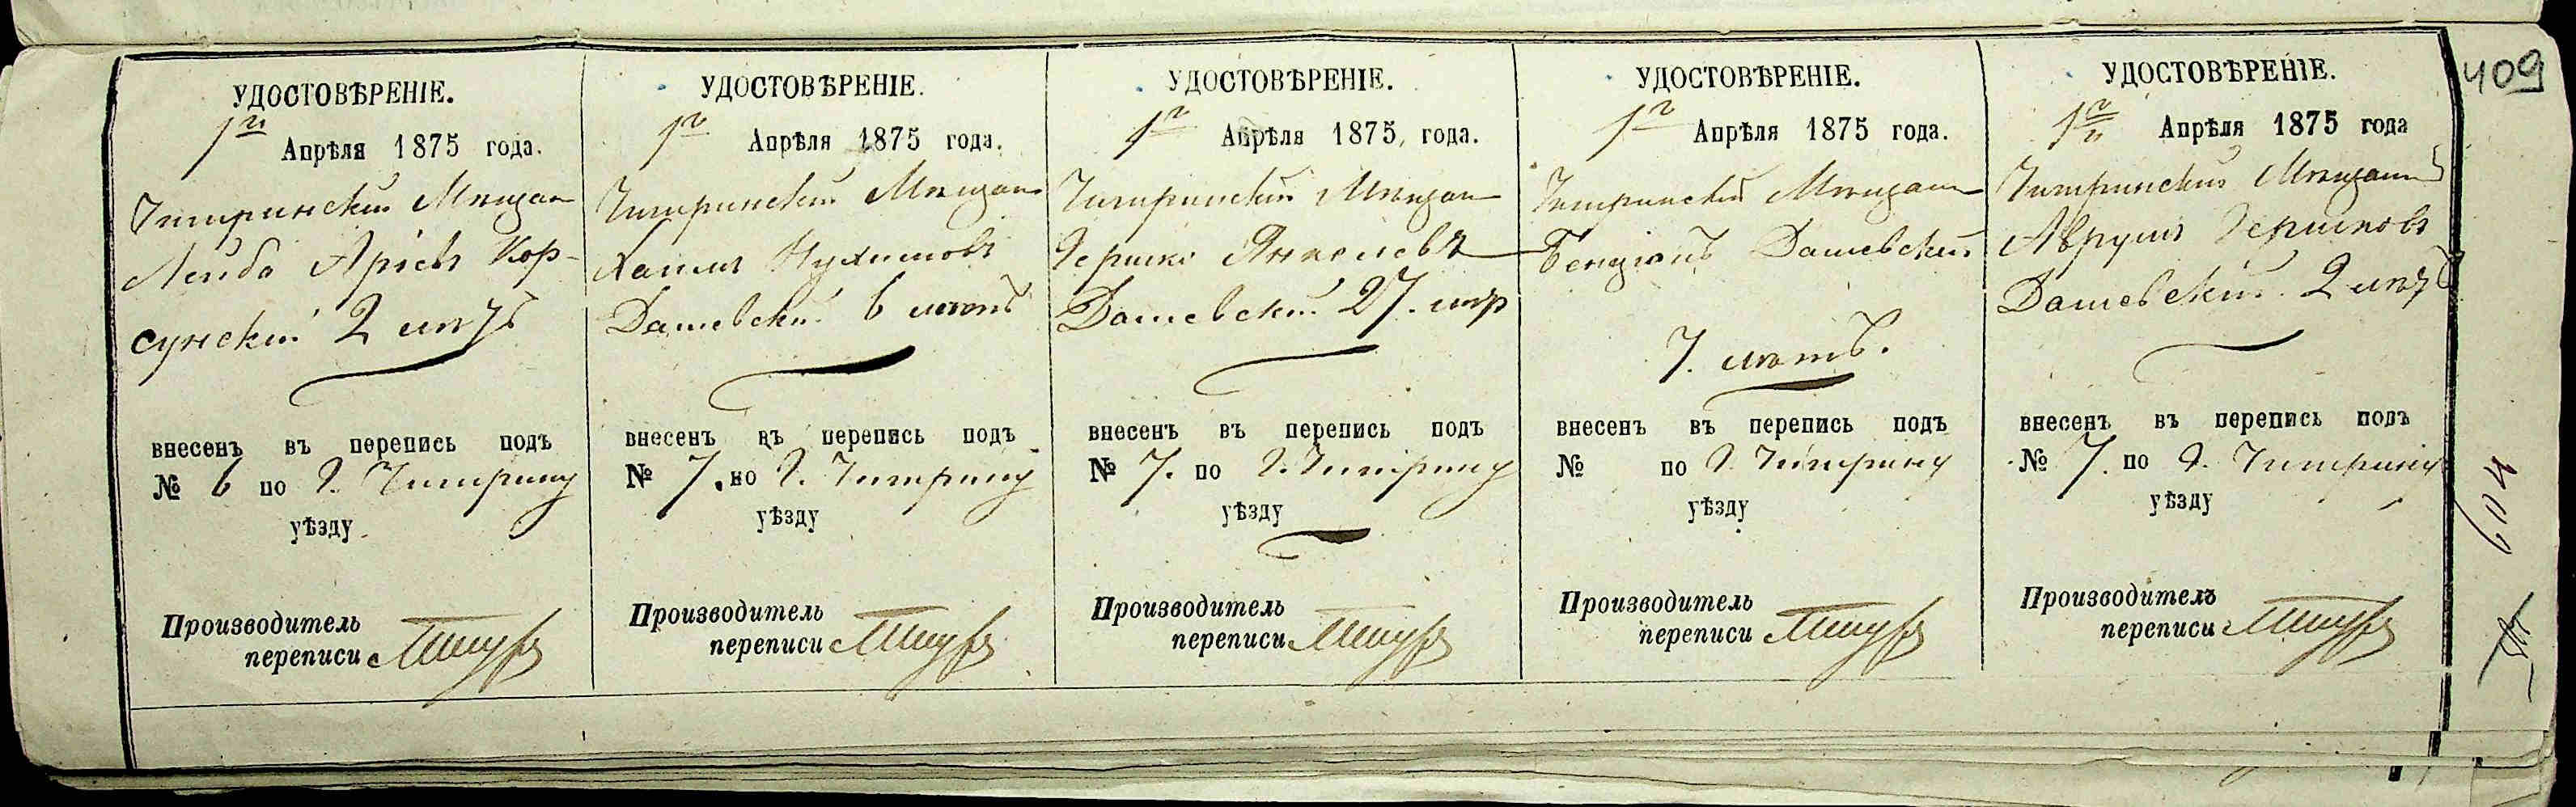 УДОСТОВѢРЕНІЕ.
1го Апрѣля 1875 года.
Чигринскій Мѣщан
Лейба Арьевъ Кор-
сунскій 2 лѣтъ
внесенъ въ перепись подъ
№ 6 по г. Чигрину
уѣзду
Производитель
переписи
УДОСТОВѢРЕНІЕ.
1го Апрѣля 1875 года.
Чигринскій Мѣщан
Хаимъ Нухимовъ
Дашевскій 6 лѣтъ
внесенъ въ перепись подъ
№ 7. по г. Чигрину
уѣзду
Производитель
переписи
УДОСТОВѢРЕНІЕ.
1го Апрѣля 1875 года.
Чигринскій Мѣщан
Гершко Янкелевъ
Дашевскій 27. лѣт
внесенъ въ перепись подъ
№ 7. по г. Чигрину
уѣзду
Производитель
переписи
УДОСТОВѢРЕНІЕ.
1го Апрѣля 1875 года.
Чигринскій Мѣщан
Бенціонъ Дашевскій
7. лѣтъ.
внесенъ въ перепись подъ
№ по г. Чигрину
уѣзду
Производитель
переписи
УДОСТОВѢРЕНІЕ.
1го Апрѣля 1875 года
Чигринскій Мѣщан
Аврумъ Гершковъ
Дашевскій 2 лѣтъ
внесенъ въ перепись подъ
№ 7. по г. Чигрину
уѣзду
Производитель
переписи
409